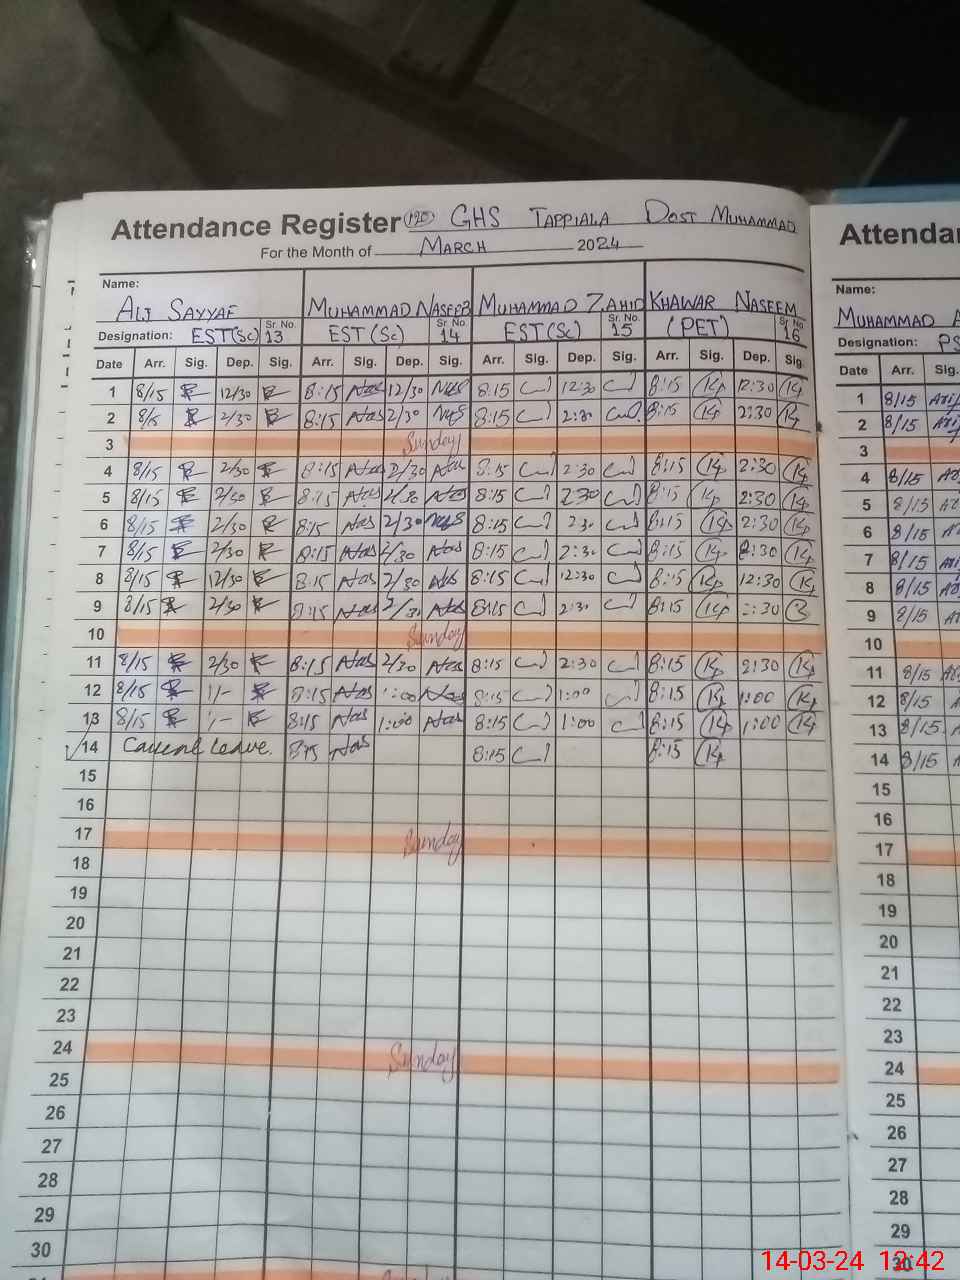 Attendance Register GHS TAPPIALA DOST MUHAMMAD
For the Month of MARCH 2024
Name:
ALI SAYYAF MUHAMMAD NASEEB MUHAMMAD ZAHID KHAWAR NASEEM
Designation: EST(Sc) Sr. No. 13 EST (Sc) Sr. No. 14 EST(Sc) Sr. No. 15 (PET) Sr. No. 16
Date Arr. Sig. Dep. Sig. Arr. Sig. Dep. Sig. Arr. Sig. Dep. Sig. Arr. Sig. Dep. Sig.
1 8/15 12/30 8:15 Nas 12/30 Nas 8:15 12:30 8:15 12:30
2 8/15 2/30 8:15 Nas 2/30 Nas 8:15 2:30 8:15 2:30
3 Sunday
4 8/15 2/30 8:15 Nas 2/30 Nas 8:15 2:30 8:15 2:30
5 8/15 2/30 8:15 Nas 2/30 Nas 8:15 2:30 8:15 2:30
6 8/15 2/30 8:15 Nas 2/30 Nas 8:15 2:30 8:15 2:30
7 8/15 2/30 8:15 Nas 2/30 Nas 8:15 2:30 8:15 2:30
8 8/15 12/30 8:15 Nas 2/30 Nas 8:15 12:30 8:15 12:30
9 8/15 2/30 8:15 Nas 2/30 Nas 8:15 2:30 8:15 2:30
10 Sunday
11 8/15 2/30 8:15 Nas 2/30 Nas 8:15 2:30 8:15 2:30
12 8/15 1/- 8:15 Nas 1:00 Nas 8:15 1:00 8:15 1:00
13 8/15 1/- 8:15 Nas 1:00 Nas 8:15 1:00 8:15 1:00
14 leave. 8:15 Nas 8:15 8:15
15
16
17 Sunday
18
19
20
21
22
23
24 Sunday
25
26
27
28
29
30
Attenda
Name:
MUHAMMAD A
Designation: PS
Date Arr. Sig.
1 8/15
2 8/15
3
4 8/15
5 8/15
6 8/15
7 8/15
8 8/15
9 8/15
10
11 8/15
12 8/15
13 8/15
14 8/15
15
16
17
18
19
20
21
22
23
24
25
26
27
28
29
30
14-03-24 12:42